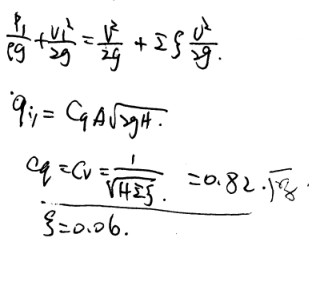 P₁/ρg + V₁²/2g = V²/2g + Σξ V²/2g.
qᵥ = CqA√2gH.
Cq = Cv = 1/√1+Σξ = 0.82.
ξ = 0.06.